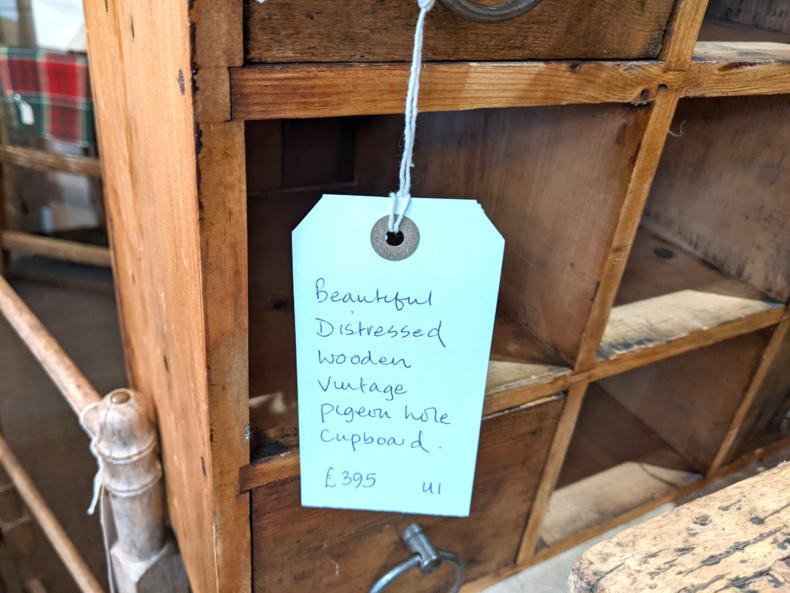 Beautiful
Distressed
wooden
Vintage
pigeon hole
Cupboard.
£395 U1